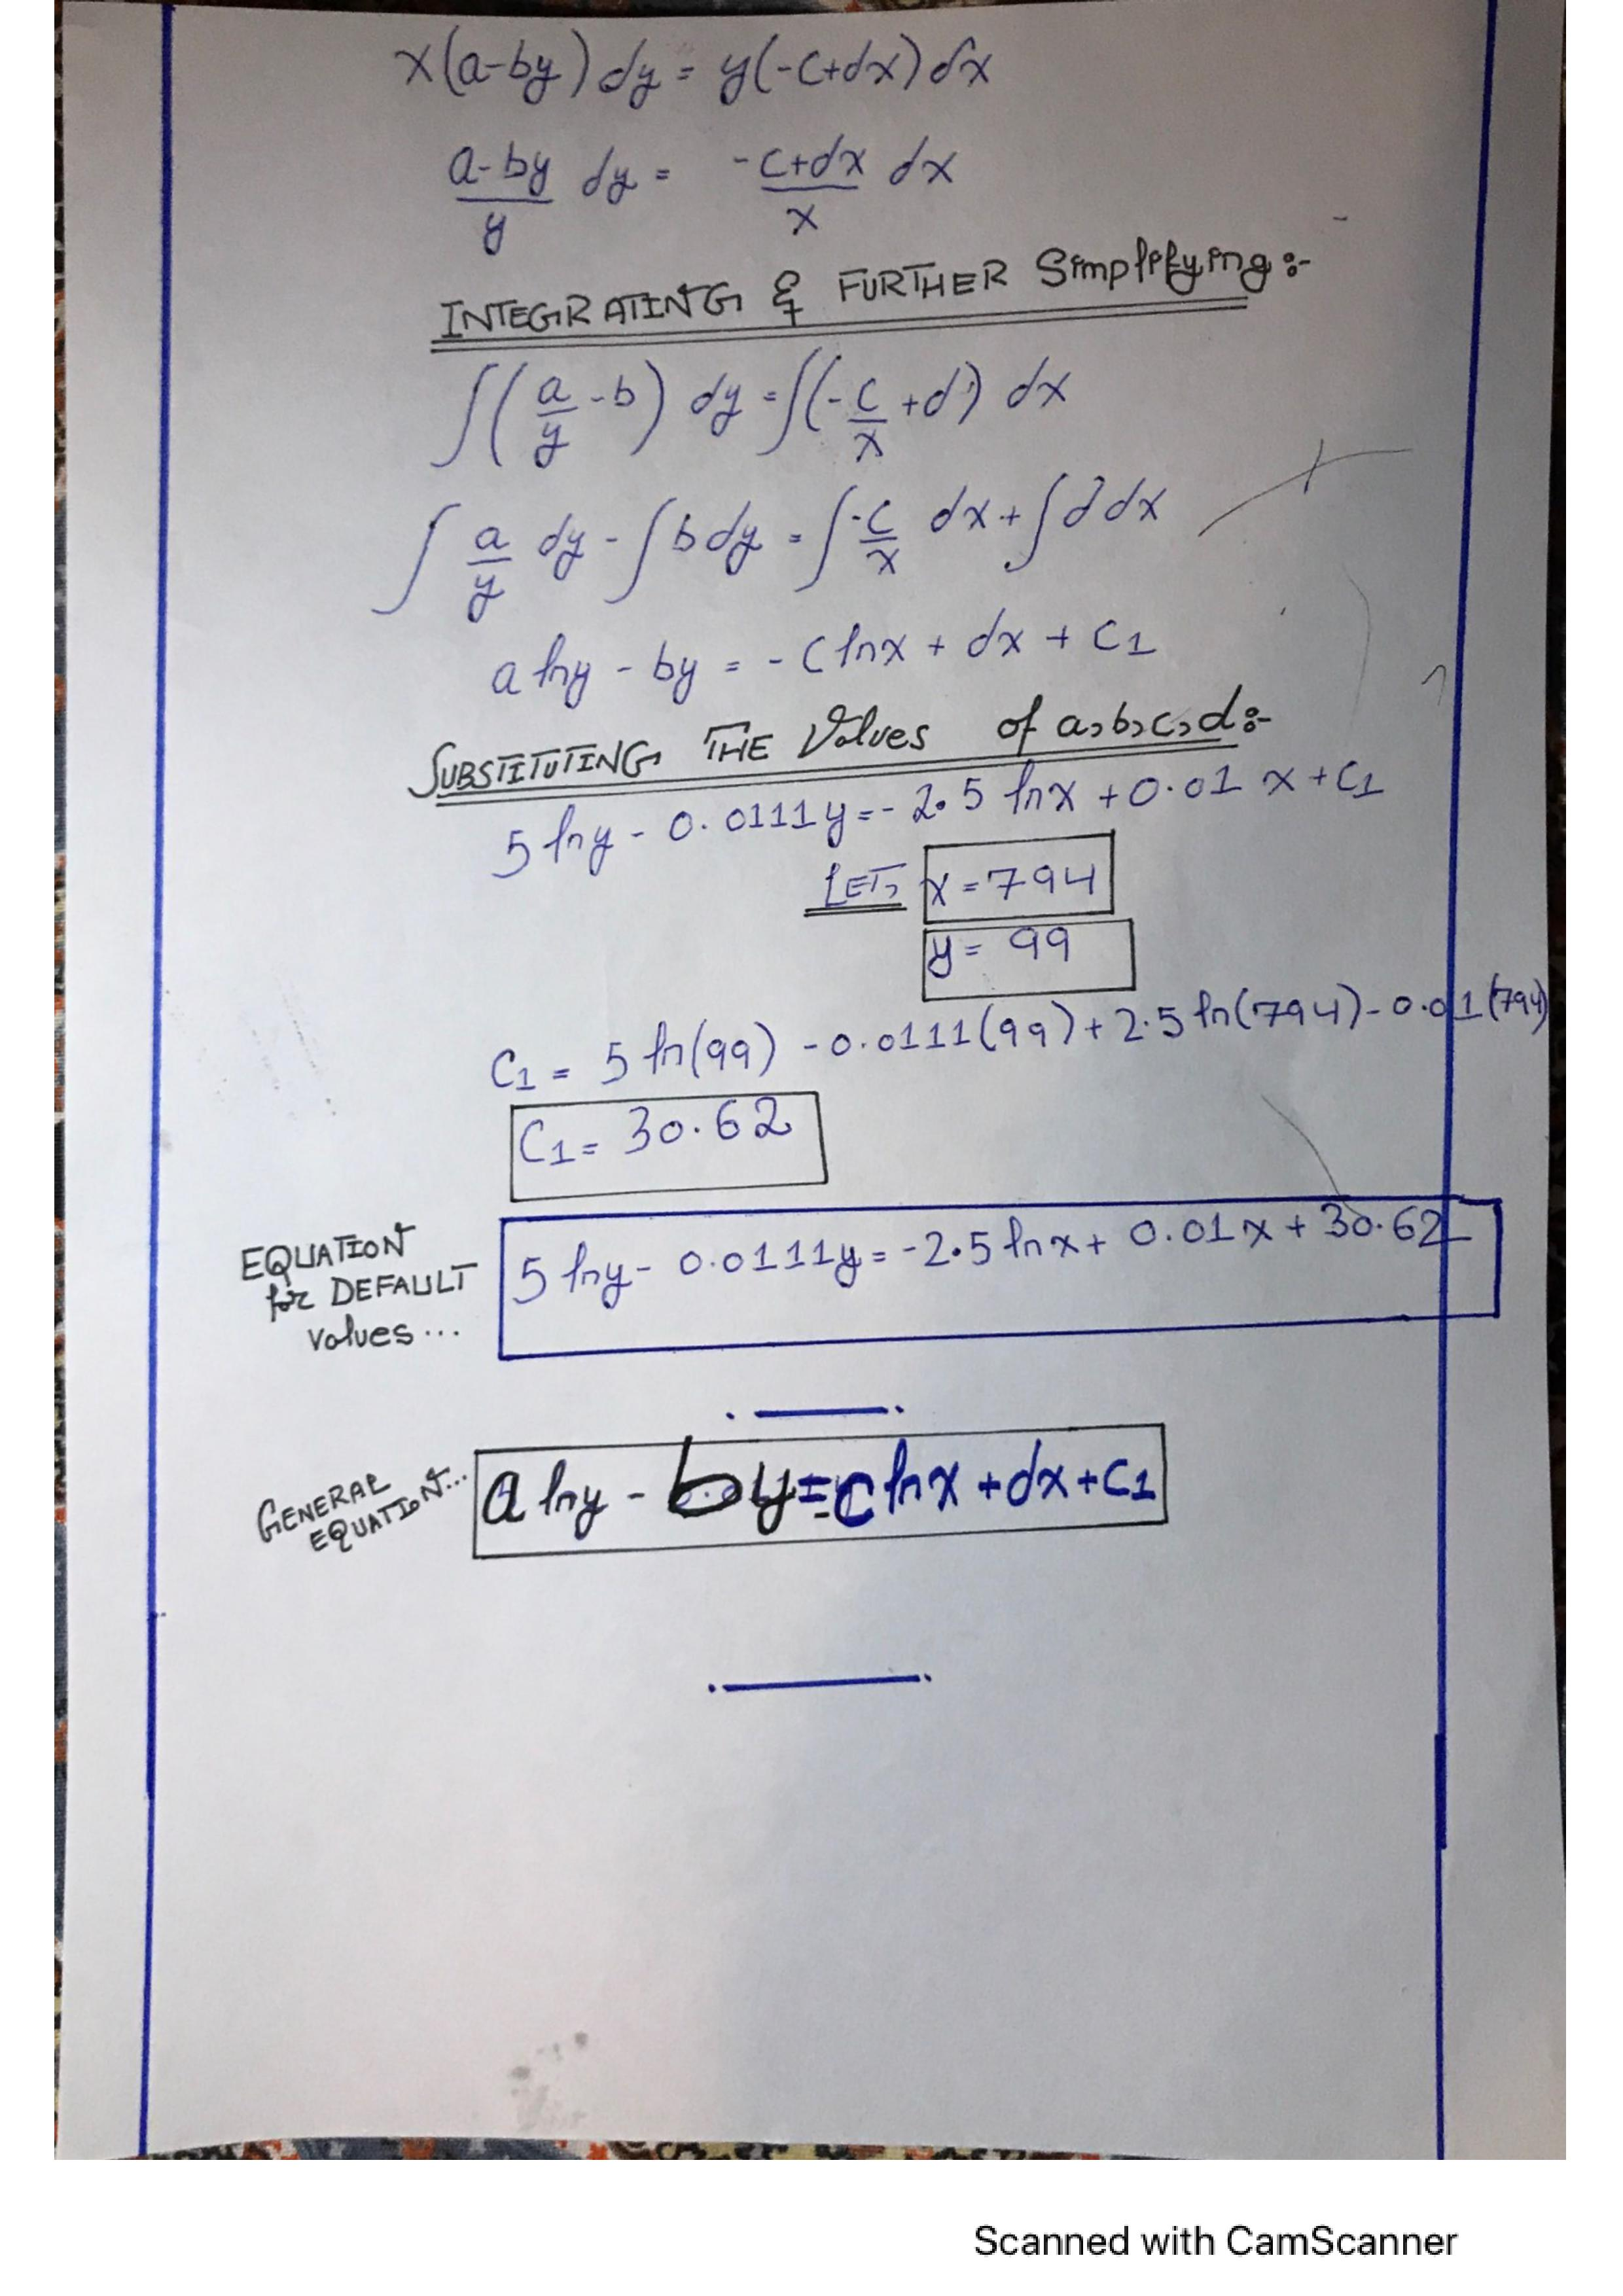 x(a-by) dy = y(-c+dx) dx
a-by/y dy = -c+dx/x dx
INTEGRATING & FURTHER Simplifying:-
∫(a/y - b) dy = ∫(-c/x + d) dx
∫ a/y dy - ∫ b dy = ∫ -c/x dx + ∫ d dx
a ln y - by = - c ln x + dx + C1
SUBSTITUTING THE Values of a, b, c, d:-
5 ln y - 0.0111 y = - 2.5 ln x + 0.01 x + C1
LET, x = 794
y = 99
C1 = 5 ln(99) - 0.0111(99) + 2.5 ln(794) - 0.01(794)
C1 = 30.62
EQUATION
for DEFAULT
values...
5 ln y - 0.0111y = -2.5 ln x + 0.01x + 30.62
GENERAL
EQUATION...
a ln y - by = c ln x + dx + C1
Scanned with CamScanner